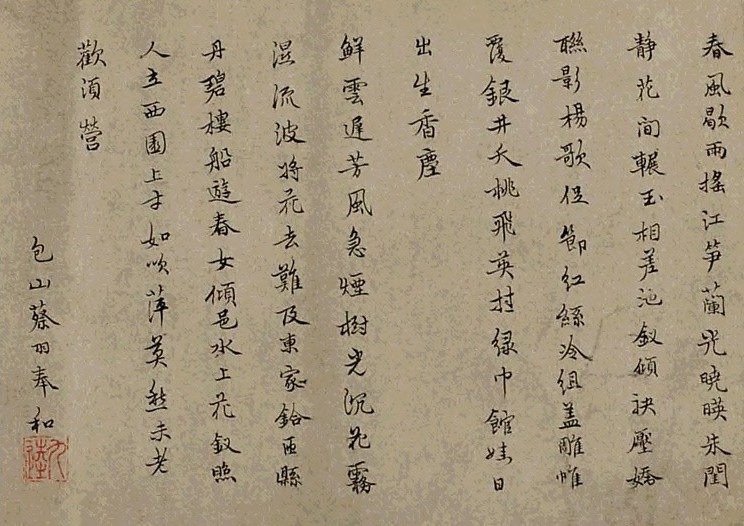 春風歇雨搖江笋蘭光曉暎朱閨
静花間輾玉相差池釵傾袂壓嬌
聮影楊歌促節紅絲冷組盖雕帷
覆銀井夭桃飛英封緑巾館娃日
出生香塵
鮮雲遲芳風急煙樹光沉花霧
濕流波將花去難及東家鉿西縣
丹碧樓船遊春女傾邑水上花釵照
人立西園上才如吹萍莫愁未老
歡須營
包山蔡羽奉和